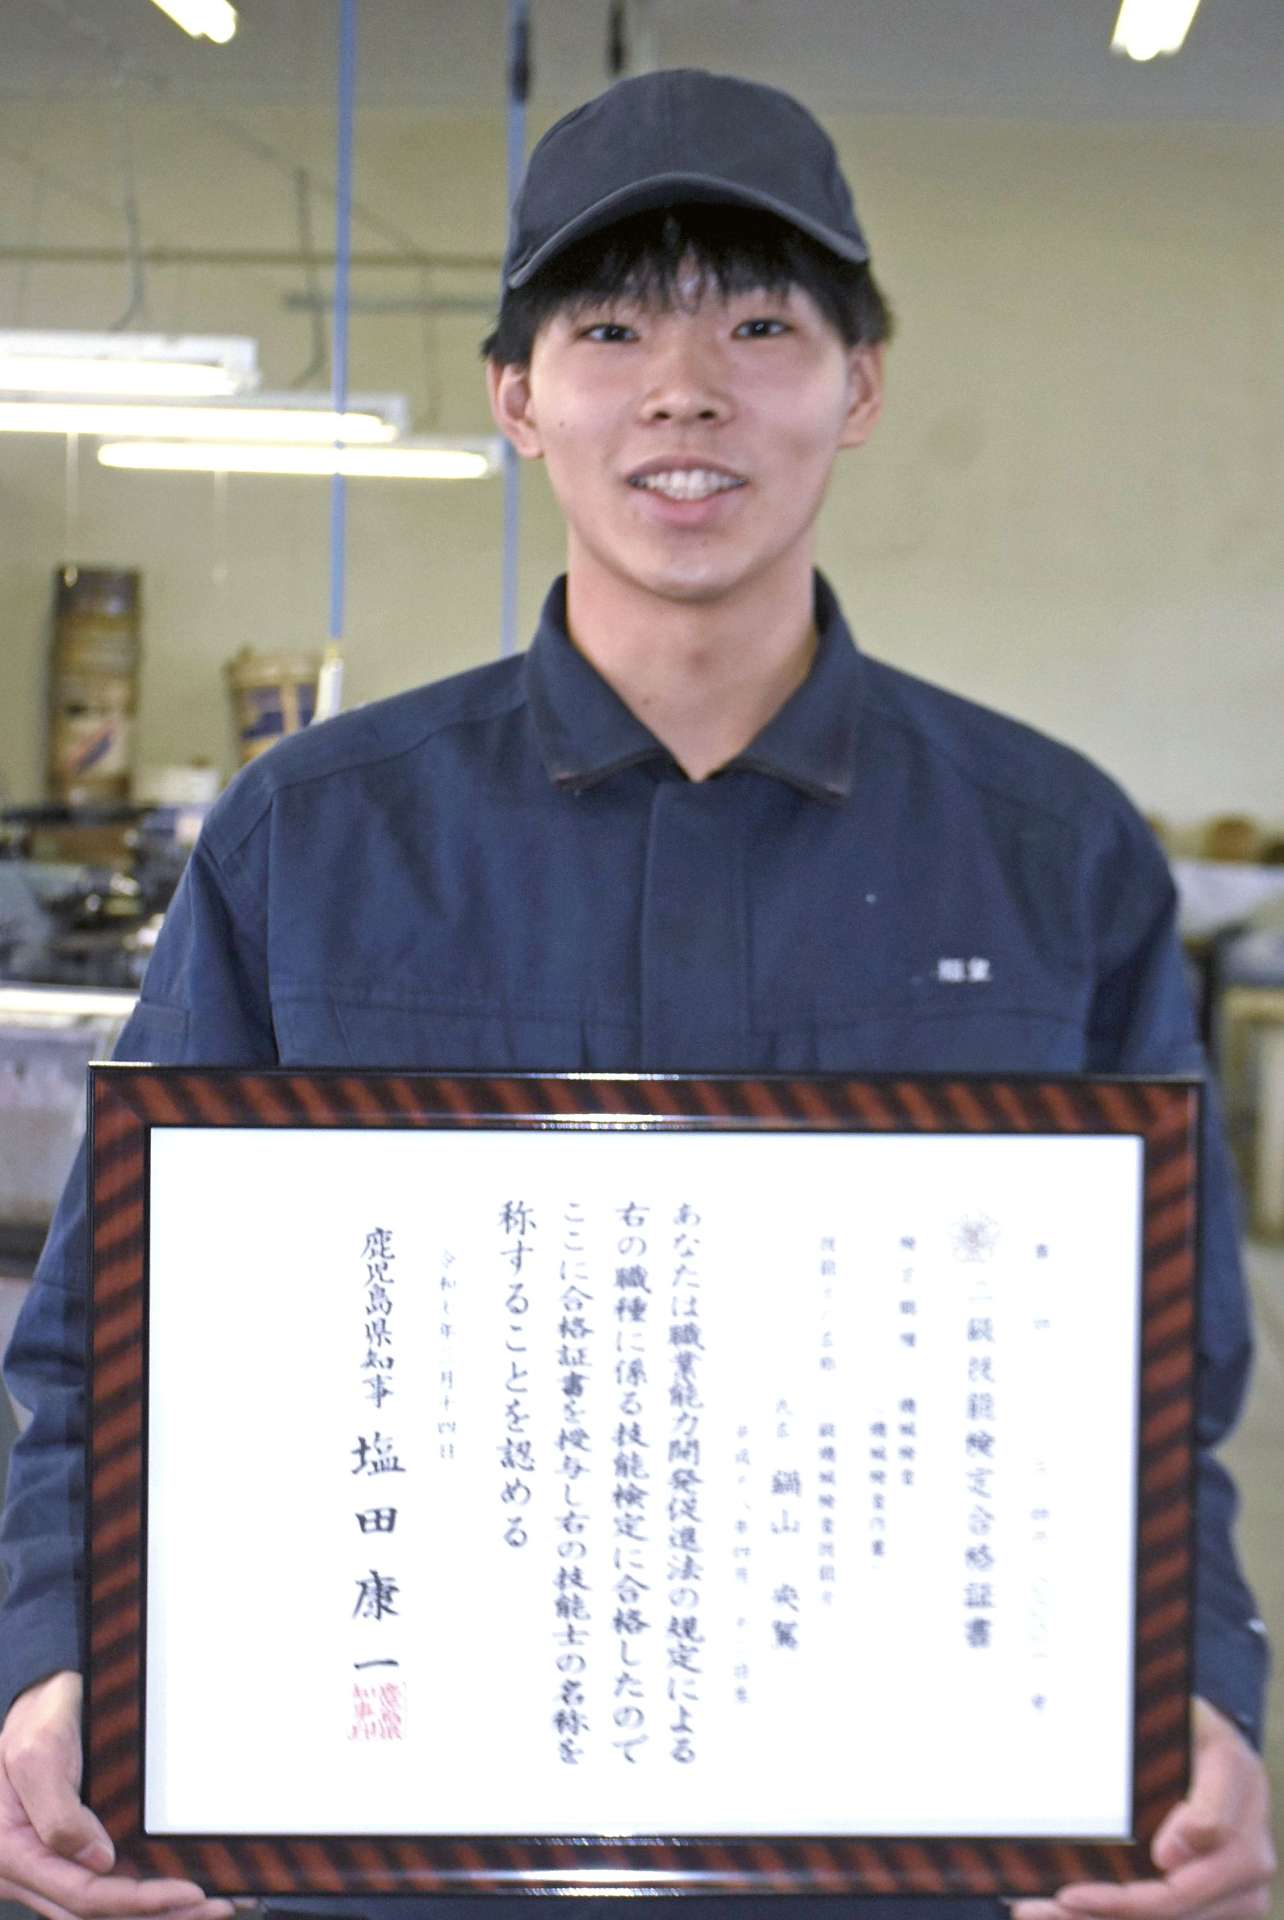 二級技能検定合格証書
検定職種 機械検査
（機械検査作業）
技能士の名称 二級機械検査技能士
氏名 鍋山
あなたは職業能力開発促進法の規定による
右の職種に係る技能検定に合格したので
ここに合格証書を授与し右の技能士の名称を
称することを認める
令和七年三月十四日
鹿児島県知事 塩田康一